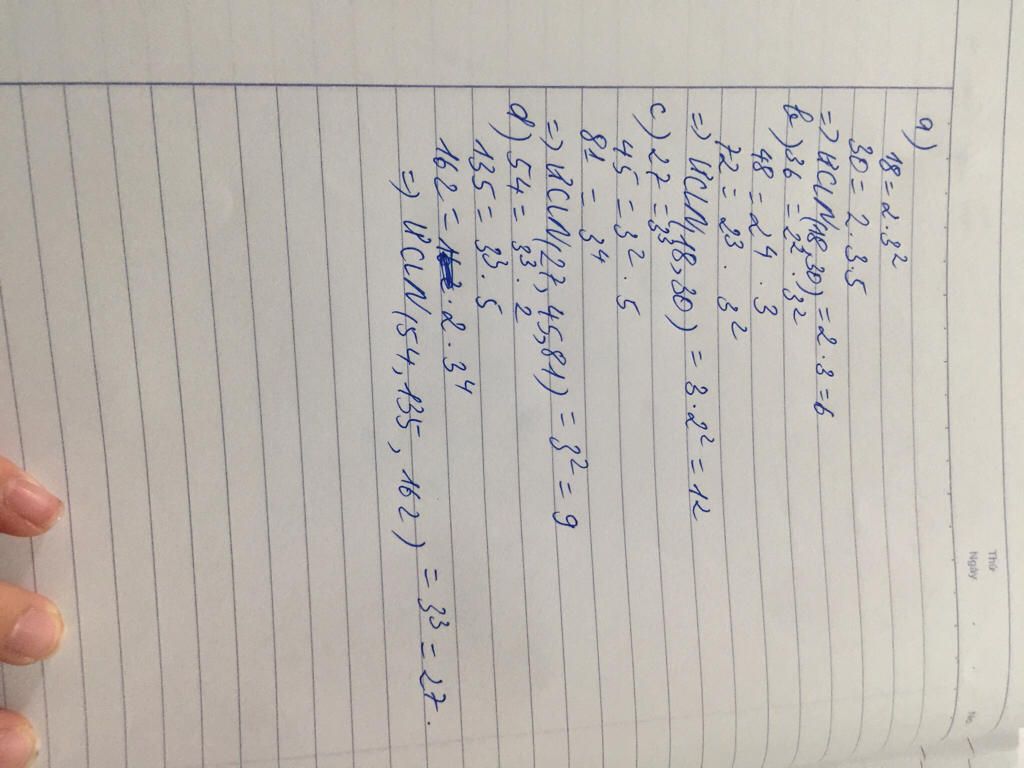 Thứ
Ngày
No.
a)
18 = 2.3²
30 = 2.3.5
=> ƯCLN(18,30) = 2.3 = 6
b) 36 = 2².3²
48 = 2⁴.3
72 = 2³.3²
=> ƯCLN(18,30) = 3.2² = 12
c) 27 = 3³
45 = 3².5
81 = 3⁴
=> ƯCLN(27,45,81) = 3² = 9
d) 54 = 3³.2
135 = 3³.5
162 = 2.3⁴
=> ƯCLN(54,135,162) = 3³ = 27.